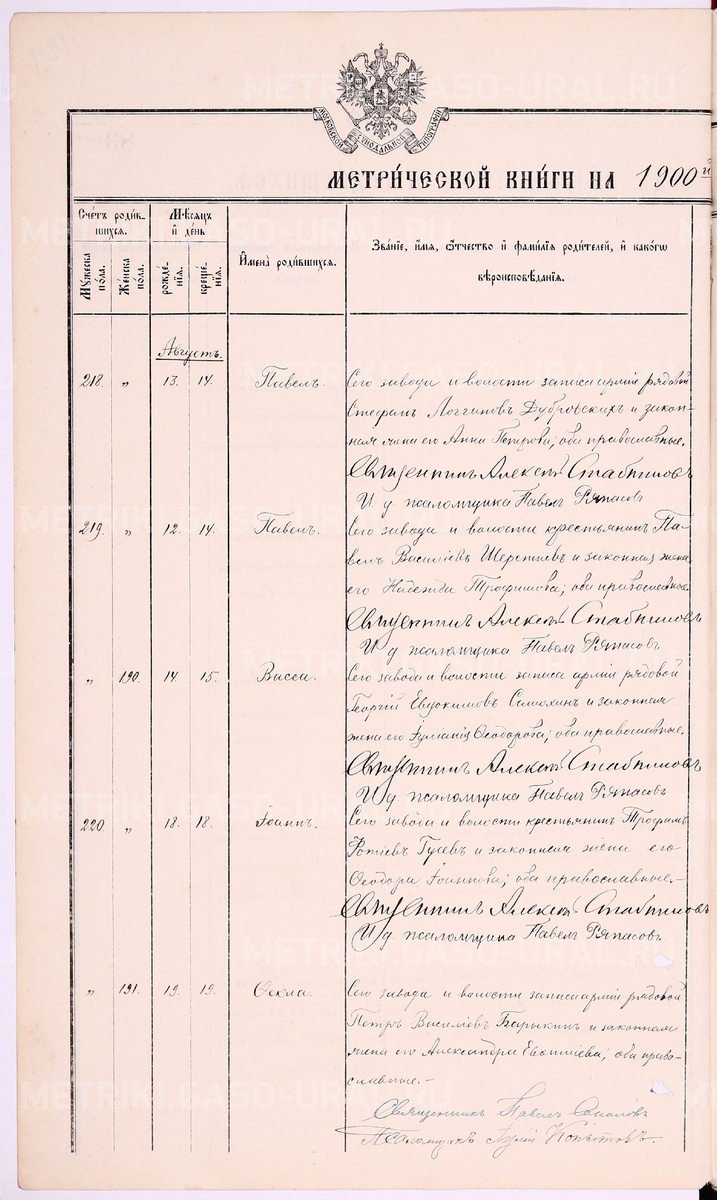 МОСКОВСКОЙ СѴНОДАЛЬНОЙ ТИПОГРАФІИ
МЕТРИ́ЧЕСКОЙ КНИ́ГИ НА 1900й
Сче́тъ роди́вшихся.
Мѣ́сяцъ и́ де́нь
И҆мена̀ роди́вшихся.
Зва́нїе, и҆́мя, ѻ҆́тчество и҆ фами́лїя роди́телей, и҆ како́гѡ
вѣроисповѣ́данїя.
Мꙋ́жеска по́ла.
Же́нска по́ла.
рожде́нїя.
креще́нїя.
Августъ.
218. „ 13. 14. Павелъ. Сего завода и волости запаса арміи рядовой
Стефанъ Логгиновъ Дубровскихъ и закон-
ная жена его Анна Петрова; оба православные.
Священникъ Алексѣй Стабниковъ
И. д. псаломщика Павелъ Ряпасовъ
219. „ 12. 14. Павелъ. Сего завода и волости крестьянинъ Па-
велъ Василіевъ и законная жена
его Надежда Трофимова; оба православные.
Священникъ Алексѣй Стабниковъ
И д псаломщика Павелъ Ряпасовъ
„ 190. 14. 15. Васса. Сего завода и волости запаса арміи рядовой
Георгій Евдокимовъ и законная
жена его Іуліанія Ѳеодорова; оба православные.
Священникъ Алексѣй Стабниковъ
И д псаломщика Павелъ Ряпасовъ
220 „ 18. 18. Іоаннъ. Сего завода и волости крестьянинъ Трофимъ
Фотіевъ Гусевъ и законная жена его
Ѳеодора Іоаннова; оба православные.-
Священникъ Алексѣй Стабниковъ
И д псаломщика Павелъ Ряпасовъ.
„ 191. 19. 19. Ѳекла. Сего завода и волости запаса арміи рядовой
Петръ Василіевъ Барыкинъ и законная
жена его Александра; оба право-
славные.-
Священникъ Павелъ
Псаломщикъ Копытовъ.